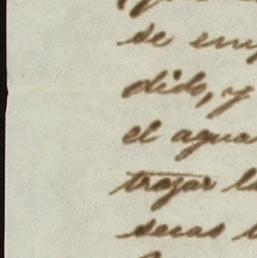 se em
dido, y
el agua
trazar l
secas